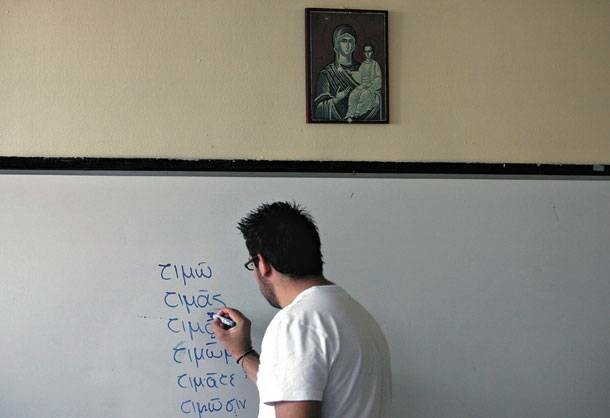 τιμῶ
τιμᾶς
τιμᾷ
τιμῶμ
τιμᾶτε
τιμῶσιν